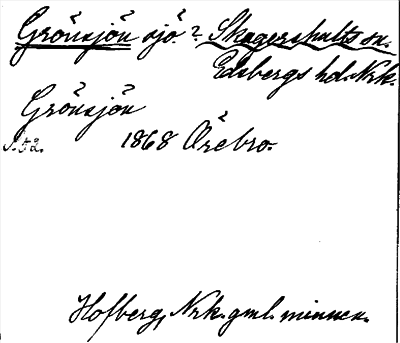 Grönsjön sjö? Skagershults sn.
Edsbergs hd. Nrk.
Grönsjön
s. 52. 1868 Örebro.
Hofberg, Nrk. gml. minnen.